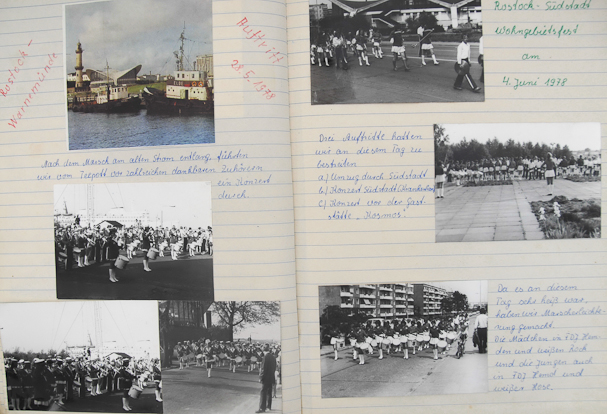 Rostock-
Warnemünde
Auftritt
28.5.1978
Nach dem Marsch am alten Strom entlang führten
wir vom Teepott vor zahlreichen dankbaren Zuhörern
ein Konzert
durch.
Rostock-Südstadt
Wohngebietsfest
am
4. Juni 1978
Drei Auftritte hatten
wir an diesem Tag zu
bestreiten
a) Umzug durch Südstadt
b) Konzert Südstadt
c) Konzert vor der Gast-
stätte „Kosmos".
Da es an diesem
Tag sehr heiß war,
haben wir Marscherleichte-
rung gemacht.
Die Mädchen in FDJ Hem-
den und weißen Rock
und die Jungen auch
in FDJ Hemd und
weißer Hose.